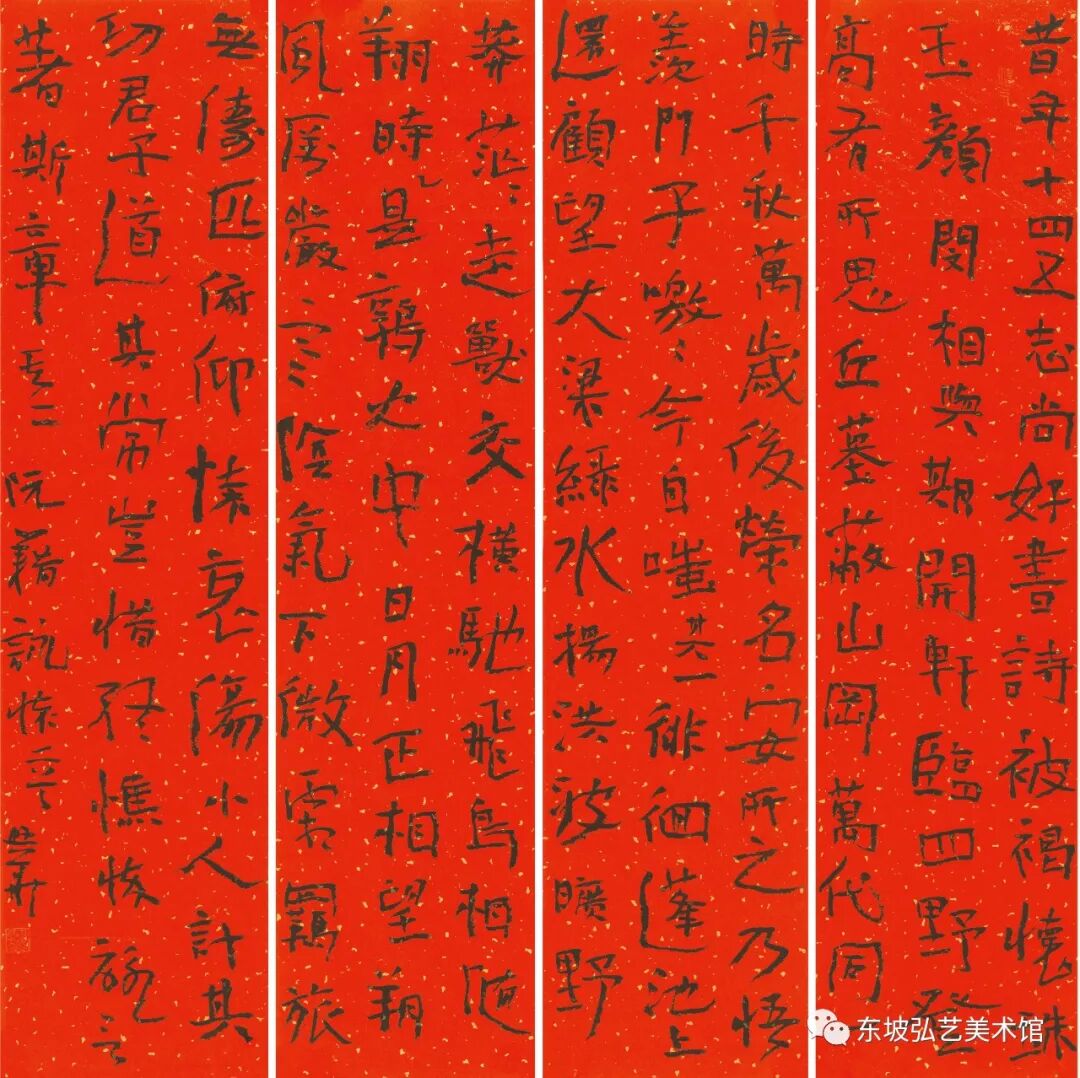 昔年十四五志尚好書詩被褐懷珠
玉顏閔相與期開軒臨四野登
高有所思丘墓蔽山岡萬代同一
時千秋萬歲後榮名安所之乃悟
羨門子噭〻今自嗤其一徘徊蓬池上
還顧望大梁綠水揚洪波曠野
莽茫〻走獸交橫馳飛鳥相隨
翔時是鶉火中日月正相望朔
風厲嚴寒陰氣下微霜羈旅
無儔匹俯仰懷哀傷小人計其
功君子道其常豈惜終憔悴詠言
著斯章其二 阮籍詠懷二章
东坡弘艺美术馆